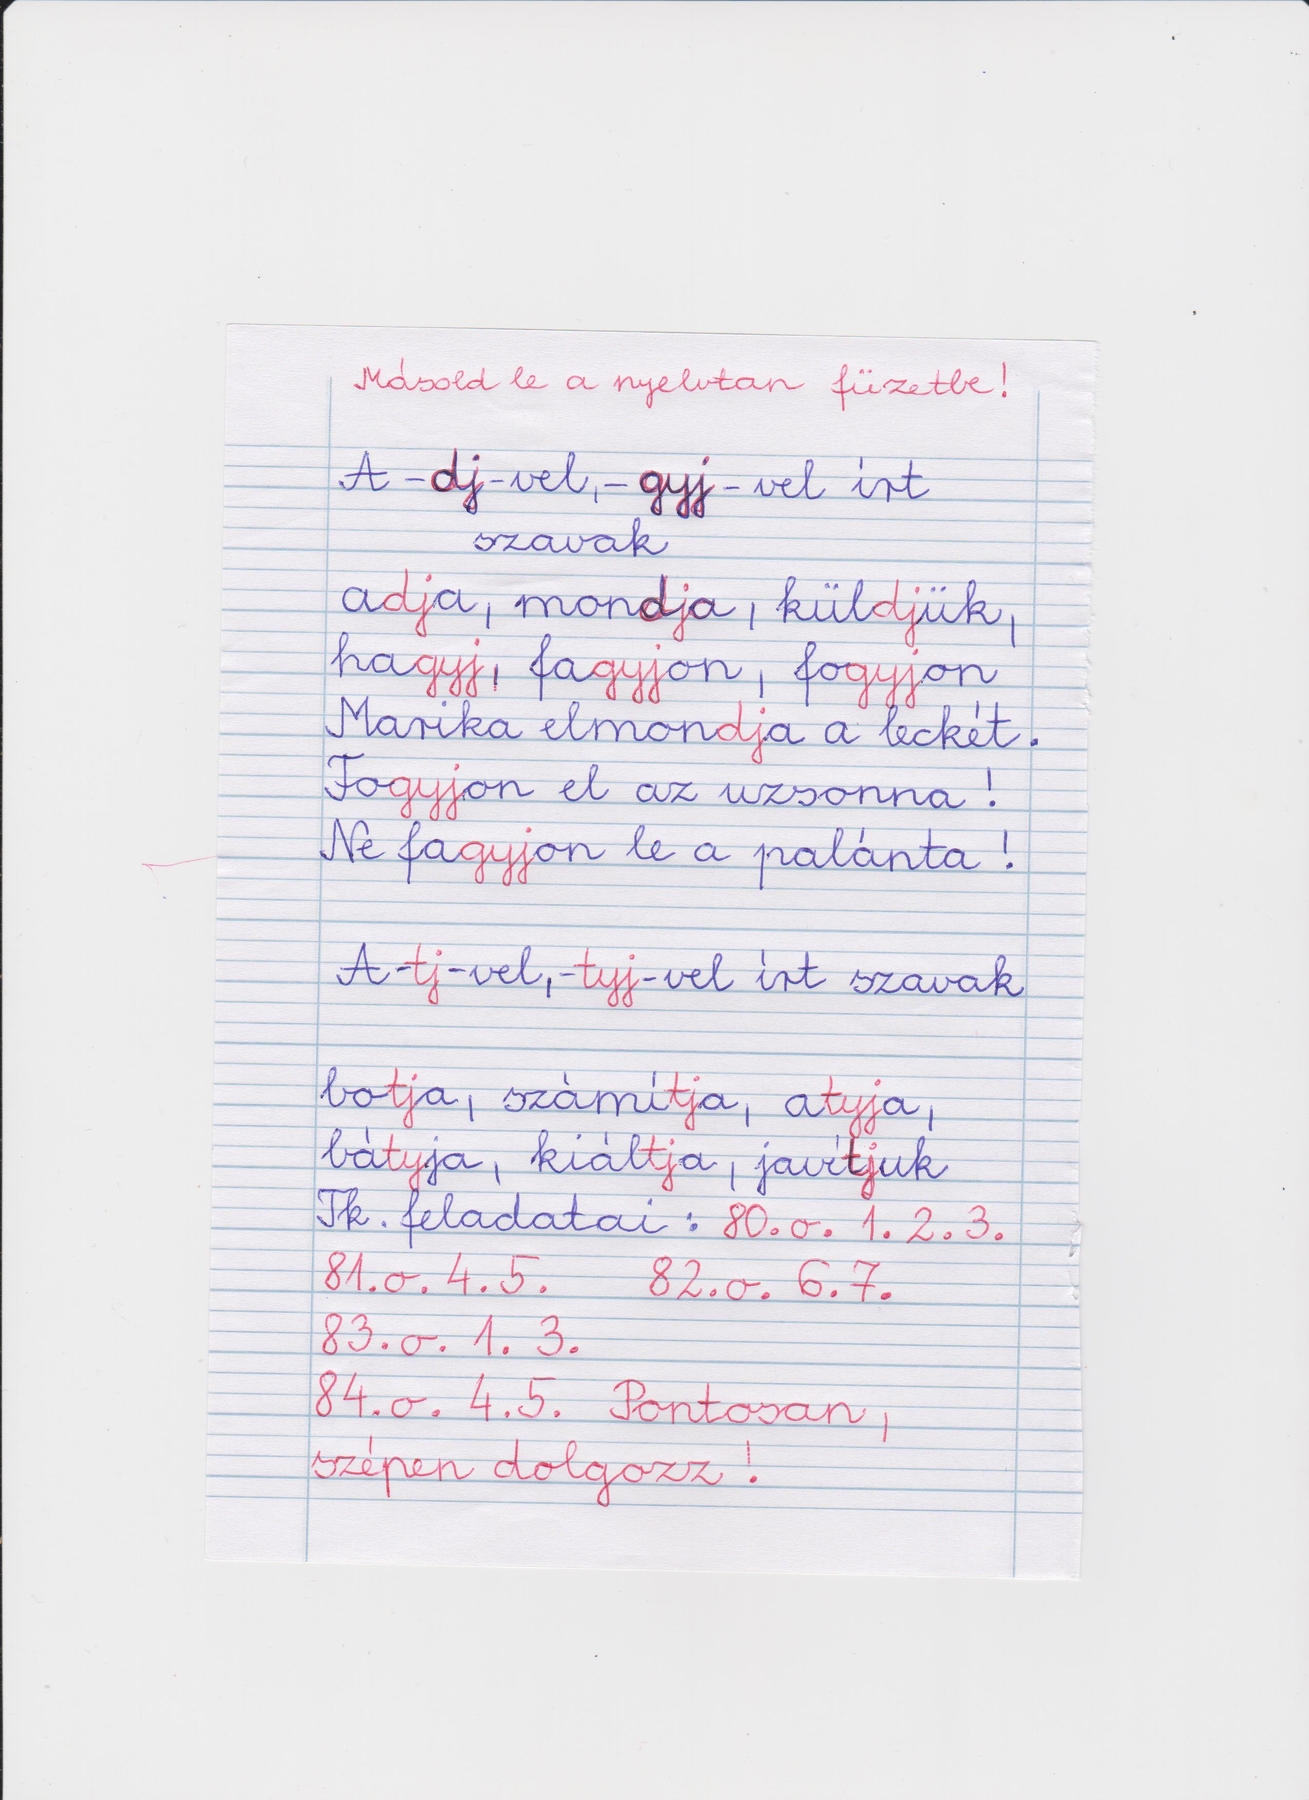 Másold le a nyelvtan füzetbe!
A -dj-vel, -gyj-vel írt
szavak
adja, mondja, küldjük,
hagyj, fagyjon, fogyjon
Marika elmondja a leckét.
Fogyjon el az uzsonna!
Ne fagyjon le a palánta!
A -tj-vel, -tyj-vel írt szavak
botja, számítja, atyja,
bátyja, kiáltja, javítjuk
Tk. feladatai: 80.o. 1. 2. 3.
81.o. 4. 5. 82.o. 6. 7.
83.o. 1. 3.
84.o. 4. 5. Pontosan,
szépen dolgozz!